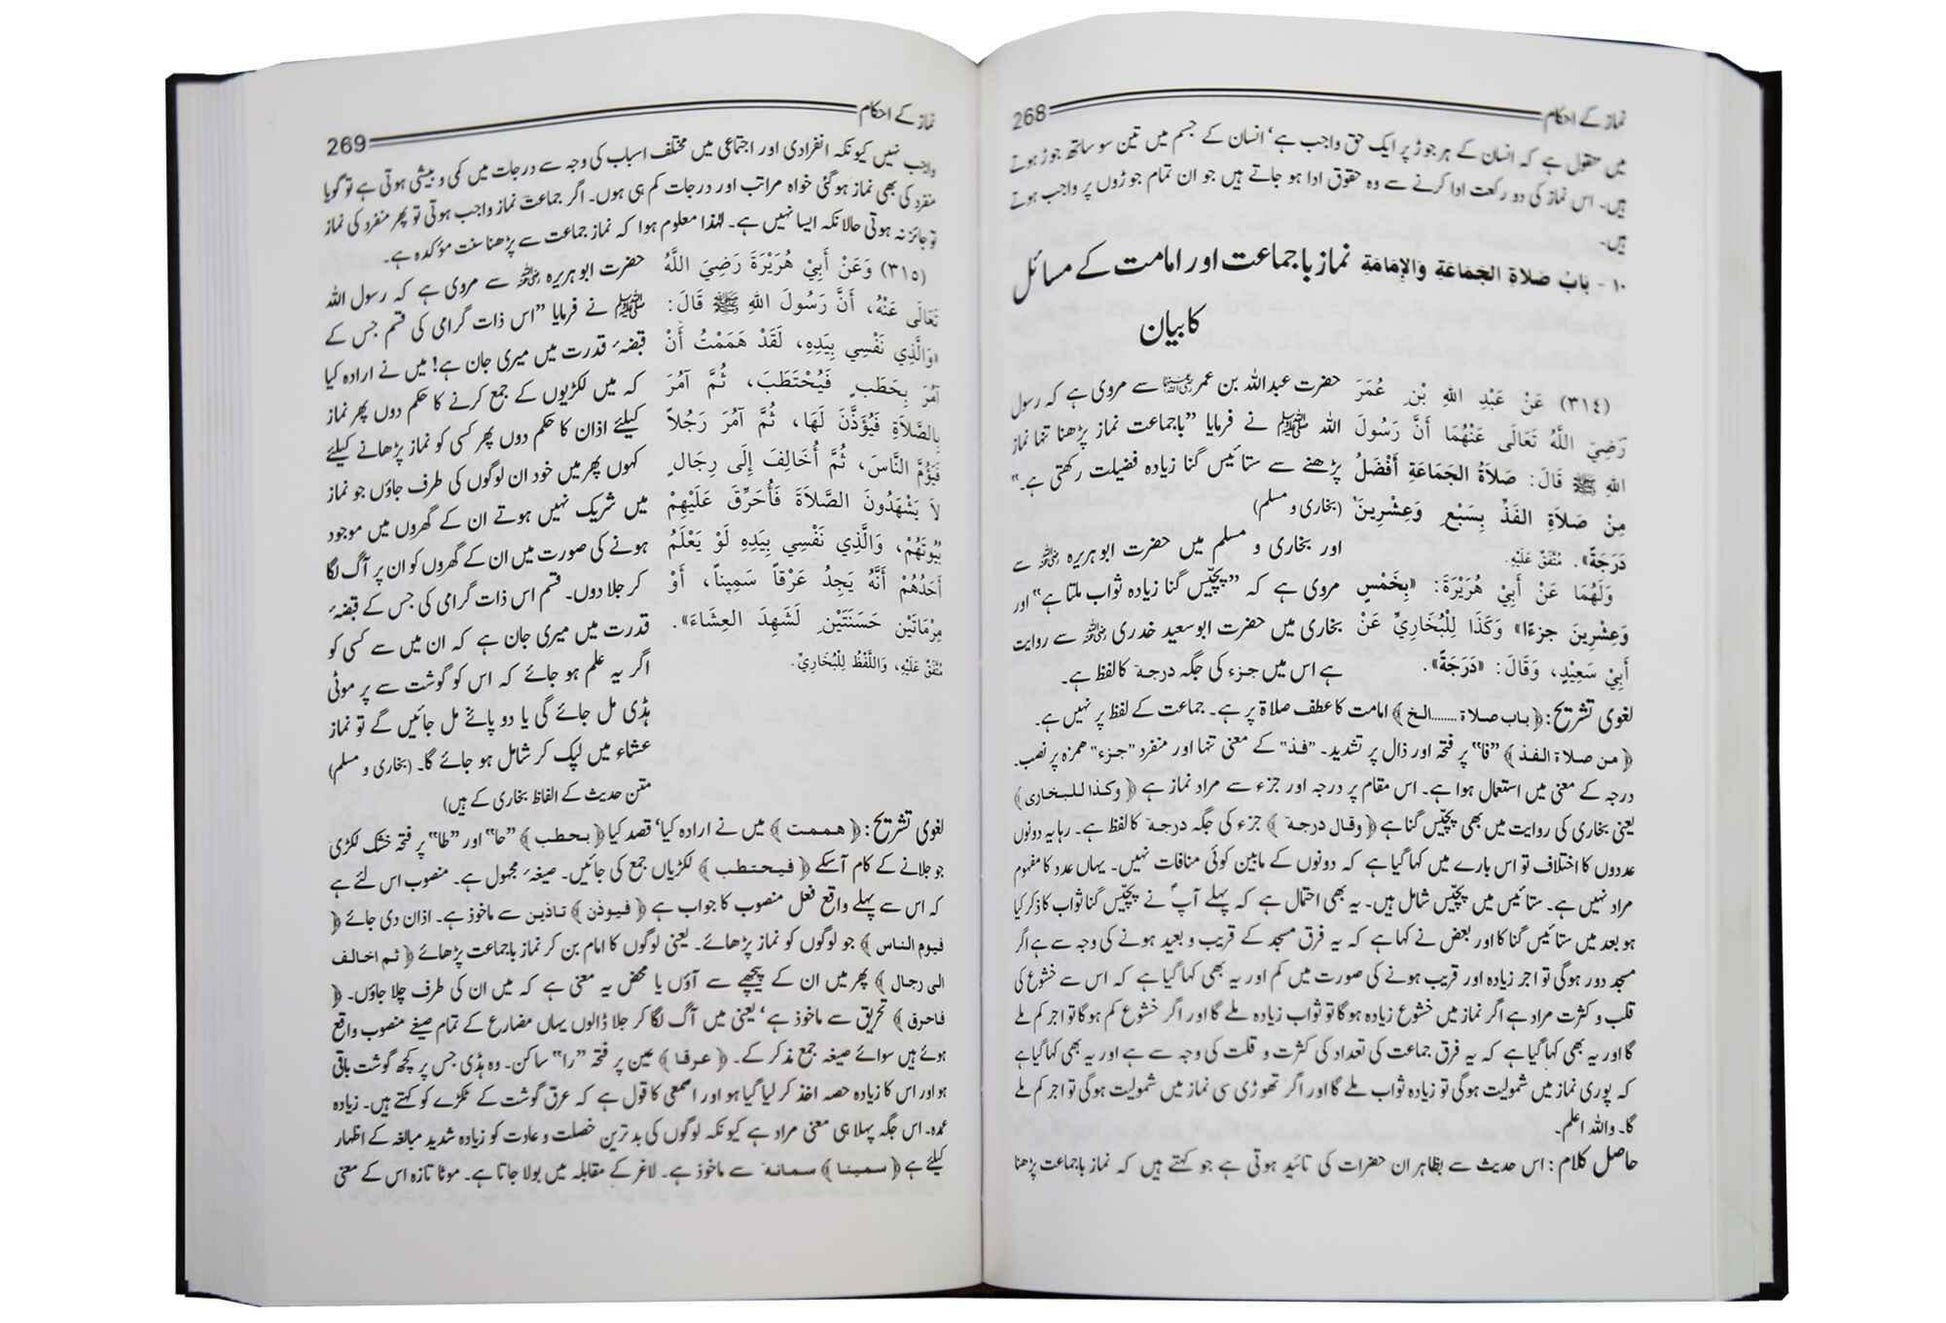 نماز کے احکام 268
میں حقول ہے کہ انسان کے ہر جوڑ پر ایک حق واجب ہے، انسان کے جسم میں تین سو ساٹھ جوڑ ہوتے
ہیں۔ اس نماز کی دو رکعت ادا کرنے سے وہ حقوق ادا ہو جاتے ہیں جو ان تمام جوڑوں پر واجب ہوتے
ہیں۔
١٠ - بَابُ صَلَاةِ الجَمَاعَةِ وَالإِمَامَةِ نماز باجماعت اور امامت کے مسائل
کا بیان
(٣١٤) عَنْ عَبْدِ اللهِ بْنِ عُمَرَ
رَضِيَ اللَّهُ تَعَالَى عَنْهُمَا أَنَّ رَسُولَ
اللهِ ﷺ قَالَ: صَلَاةُ الجَمَاعَةِ أَفْضَلُ
مِنْ صَلَاةِ الفَذِّ بِسَبْعٍ وَعِشْرِينَ
دَرَجَةً». مُتَّفَقٌ عَلَيْهِ.
وَلَهُمَا عَنْ أَبِيْ هُرَيْرَةَ: «بِخَمْسٍ
وَعِشْرِينَ جزءًا» وَكَذَا لِلْبُخَارِيِّ عَنْ
أَبِيْ سَعِيْدٍ، وَقَالَ: «دَرَجَةً».
حضرت عبداللہ بن عمر رضی اللہ عنہما سے مروی ہے کہ رسول
اللہ ﷺ نے فرمایا ”باجماعت نماز پڑھنا تنہا نماز
پڑھنے سے ستائیس گنا زیادہ فضیلت رکھتی ہے۔“
(بخاری و مسلم)
اور بخاری و مسلم میں حضرت ابو ہریرہ رضی اللہ عنہ سے
مروی ہے کہ ”پچیس گنا زیادہ ثواب ملتا ہے“ اور
بخاری میں حضرت ابو سعید خدری رضی اللہ عنہ سے روایت
ہے اس میں جزء کی جگہ درجۃ کا لفظ ہے۔
لغوی تشریح: ﴿باب صلاة ....... الخ﴾ امامت کا عطف صلاۃ پر ہے۔ جماعت کے لفظ پر نہیں ہے۔
﴿من صلاة الفذ﴾ ”فا“ پر فتحہ اور ذال پر تشدید۔ ”فذ“ کے معنی تنہا اور منفرد ”جزء“ ہمزہ پر نصب۔
درجہ کے معنی میں استعمال ہوا ہے۔ اس مقام پر درجہ اور جزء سے مراد نماز ہے ﴿وكذا للبخاری﴾
یعنی بخاری کی روایت میں بھی پچیس گنا ہے ﴿وقال درجة﴾ جزء کی جگہ درجۃ کا لفظ ہے۔ رہا یہ دونوں
عددوں کا اختلاف تو اس بارے میں کہا گیا ہے کہ دونوں کے مابین کوئی منافات نہیں۔ یہاں عدد کا مفہوم
مراد نہیں ہے۔ ستائیس میں پچیس شامل ہیں۔ یہ بھی احتمال ہے کہ پہلے آپؐ نے پچیس گنا ثواب کا ذکر کیا
ہو بعد میں ستائیس گنا کا اور بعض نے کہا ہے کہ یہ فرق مسجد کے قریب و بعید ہونے کی وجہ سے ہے اگر
مسجد دور ہوگی تو اجر زیادہ اور قریب ہونے کی صورت میں کم اور یہ بھی کہا گیا ہے کہ اس سے خشوع کی
قلب و کثرت مراد ہے اگر نماز میں خشوع زیادہ ہوگا تو ثواب زیادہ ملے گا اور اگر خشوع کم ہوگا تو اجر کم ملے
گا اور یہ بھی کہا گیا ہے کہ یہ فرق جماعت کی تعداد کی کثرت و قلت کی وجہ سے ہے اور یہ بھی کہا گیا ہے
کہ پوری نماز میں شمولیت ہوگی تو زیادہ ثواب ملے گا اور اگر تھوڑی سی نماز میں شمولیت ہوگی تو اجر کم ملے
گا۔ واللہ اعلم۔
حاصل کلام: اس حدیث سے بظاہر ان حضرات کی تائید ہوتی ہے جو کہتے ہیں کہ نماز باجماعت پڑھنا
نماز کے احکام 269
واجب نہیں کیونکہ انفرادی اور اجتماعی میں مختلف اسباب کی وجہ سے درجات میں کمی و بیشی ہوتی ہے تو گویا
منفرد کی بھی نماز ہوگئی خواہ مراتب اور درجات کم ہی ہوں۔ اگر جماعت نماز واجب ہوتی تو پھر منفرد کی نماز
تو جائز نہ ہوتی حالانکہ ایسا نہیں ہے۔ لہٰذا معلوم ہوا کہ نماز جماعت سے پڑھنا سنت مؤکدہ ہے۔
(٣١٥) وَعَنْ أَبِيْ هُرَيْرَةَ رَضِيَ اللَّهُ
تَعَالَى عَنْهُ، أَنَّ رَسُولَ اللهِ ﷺ قَالَ:
«وَالَّذِي نَفْسِي بِيَدِهِ، لَقَدْ هَمَمْتُ أَنْ
آمُرَ بِحَطَبٍ فَيُحْتَطَبَ، ثُمَّ آمُرَ
بِالصَّلَاةِ فَيُؤَذَّنَ لَهَا، ثُمَّ آمُرَ رَجُلاً
فَيَؤُمَّ النَّاسَ، ثُمَّ أُخَالِفَ إِلَى رِجَالٍ
لاَ يَشْهَدُونَ الصَّلَاةَ فَأُحَرِّقَ عَلَيْهِمْ
بُيُوتَهُمْ، وَالَّذِي نَفْسِي بِيَدِهِ لَوْ يَعْلَمُ
أَحَدُهُمْ أَنَّهُ يَجِدُ عَرْقاً سَمِيناً، أَوْ
مِرْمَاتَيْنِ حَسَنَتَيْنِ لَشَهِدَ العِشَاءَ».
مُتَّفَقٌ عَلَيْهِ، وَاللَّفْظُ لِلْبُخَارِيِّ.
حضرت ابو ہریرہ رضی اللہ عنہ سے مروی ہے کہ رسول اللہ
ﷺ نے فرمایا ”اس ذات گرامی کی قسم جس کے
قبضۂ قدرت میں میری جان ہے! میں نے ارادہ کیا
کہ میں لکڑیوں کے جمع کرنے کا حکم دوں پھر نماز
کیلئے اذان کا حکم دوں پھر کسی کو نماز پڑھانے کیلئے
کہوں پھر میں خود ان لوگوں کی طرف جاؤں جو نماز
میں شریک نہیں ہوتے ان کے گھروں میں موجود
ہونے کی صورت میں ان کے گھروں کو ان پر آگ لگا
کر جلا دوں۔ قسم اس ذات گرامی کی جس کے قبضۂ
قدرت میں میری جان ہے کہ ان میں سے کسی کو
اگر یہ علم ہو جائے کہ اس کو گوشت سے پر موٹی
ہڈی مل جائے گی یا دو پائے مل جائیں گے تو نماز
عشاء میں لپک کر شامل ہو جائے گا۔ (بخاری و مسلم)
متن حدیث کے الفاظ بخاری کے ہیں)
لغوی تشریح: ﴿هممت﴾ میں نے ارادہ کیا، قصد کیا ﴿بحطب﴾ ”حا“ اور ”طا“ پر فتحہ خشک لکڑی
جو جلانے کے کام آسکے ﴿فیحتطب﴾ لکڑیاں جمع کی جائیں۔ صیغہ مجہول ہے۔ منصوب اس لئے ہے
کہ اس سے پہلے واقع فعل منصوب کا جواب ہے ﴿فیوذن﴾ تاذین سے ماخوذ ہے۔ اذان دی جائے ﴿
فیوم الناس﴾ جو لوگوں کو نماز پڑھائے۔ یعنی لوگوں کا امام بن کر نماز باجماعت پڑھائے ﴿ثم اخالف
الی رجال﴾ پھر میں ان کے پیچھے سے آؤں یا محض یہ معنی ہے کہ میں ان کی طرف چلا جاؤں۔ ﴿
فاحرق﴾ تحریق سے ماخوذ ہے، یعنی میں آگ لگا کر جلا ڈالوں یہاں مضارع کے تمام صیغے منصوب واقع
ہوئے ہیں سوائے صیغہ جمع مذکر کے۔ ﴿عرقا﴾ عین پر فتحہ ”را“ ساکن۔ وہ ہڈی جس پر کچھ گوشت باقی
ہو اور اس کا زیادہ حصہ اخذ کر لیا گیا ہو اور اصمعی کا قول ہے کہ عرق گوشت کے ٹکڑے کو کہتے ہیں۔ زیادہ
عمدہ۔ اس جگہ پہلا ہی معنی مراد ہے کیونکہ لوگوں کی بدترین خصلت و عادت کو زیادہ شدید مبالغہ کے اظہار
کیلئے ہے ﴿سمینا﴾ سمانة سے ماخوذ ہے۔ لاغر کے مقابلہ میں بولا جاتا ہے۔ موٹا تازہ اس کے معنی